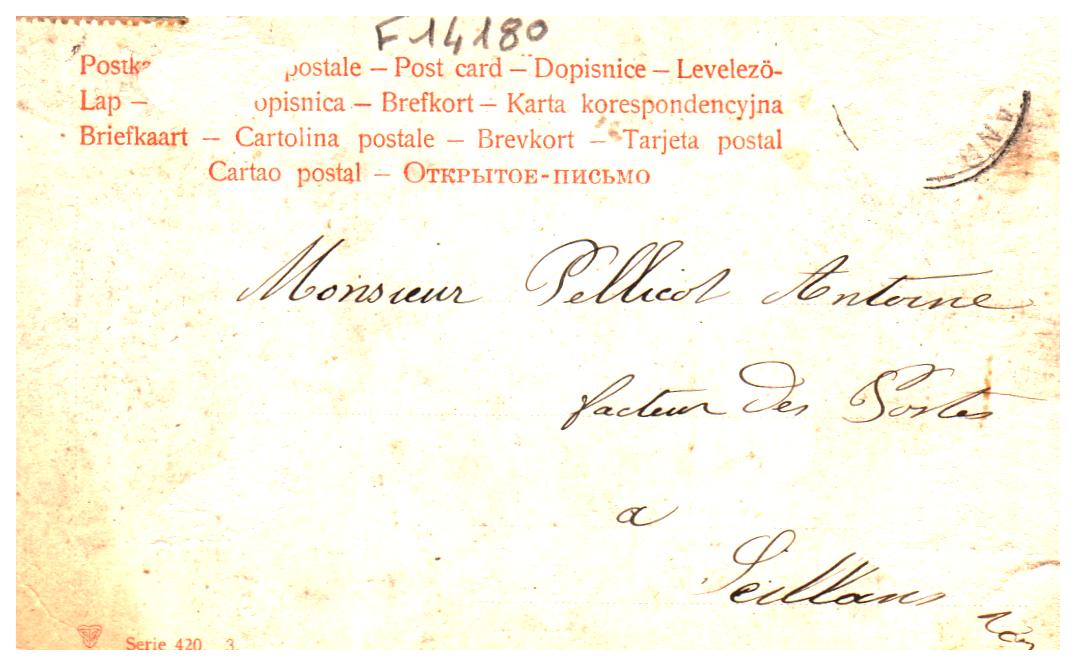 F 14180
Postka postale – Post card – Dopisnice – Levelezö-
Lap – opisnica – Brefkort – Karta korespondencyjna
Briefkaart – Cartolina postale – Brevkort – Tarjeta postal
Cartao postal – Открытое-письмо
Monsieur Pellicot Antoine
facteur des Postes
a
Seillans
Serie 420. 3.